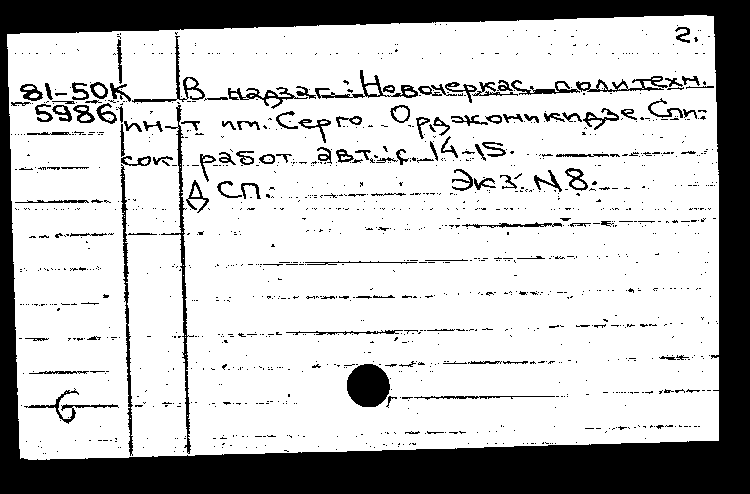 2.
81-50К В надзаг.: Новочеркас. политехн.
5986 ин-т им. Серго Орджоникидзе. Спи-
сок работ авт.: с. 14-15.
СП. Экз. N 8.
6